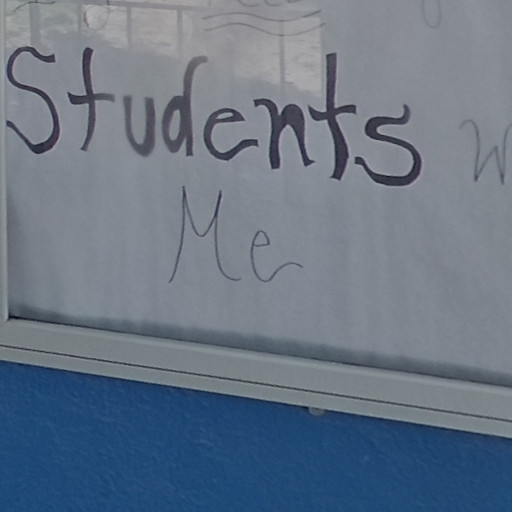 Students
Me